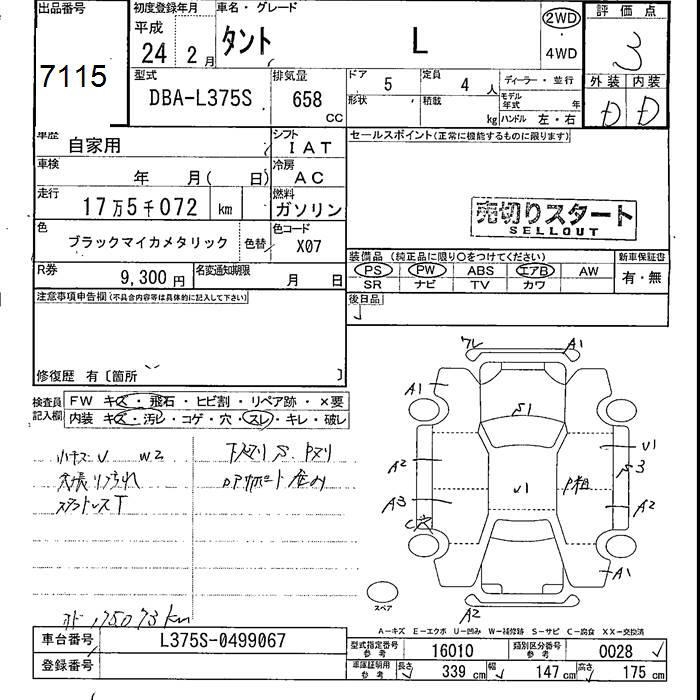 出品番号
7115
初度登録年月
平成
24 2月
車名・グレード
タント L
2WD
4WD
評価点
3
外装 内装
D D
型式
DBA-L375S
排気量
658 CC
ドア 5
定員 4人
ディーラー・並行
形状
積載 kg
モデル年式 年
ハンドル 左・右
車歴
自家用
シフト
IAT
セールスポイント(正常に機能するものに限ります)
車検
年 月( 日)
冷房
AC
走行
17万5千072 km
燃料
ガソリン
売切りスタート
SELLOUT
色
ブラックマイカメタリック
色替
色コード
X07
装備品(純正品に限り○をつけてください)
新車保証書
PS PW ABS エアB AW
SR ナビ TV カワ
有・無
R券
9,300円
名変通知期限
月 日
後日品
注意事項申告欄(不具合内容等は具体的に記入して下さい)
修復歴 有〔箇所 〕
検査員記入欄
FW キズ・飛石・ヒビ割・リペア跡・×要
内装 キズ・汚レ・コゲ・穴・スレ・キレ・破レ
小キズ U W2
下 スリ S. Pスリ
天張リ汚れ
A1
A1
S1
A2
A3
U1
U1
S3
A2
A1
A2
C穴
スペア
175073km
A-キズ E-エクボ U-凹み W-補修跡 S-サビ C-腐食 XX-交換済
車台番号
L375S-0499067
登録番号
型式指定番号 参考
16010
類別区分番号 参考
0028
車庫証明用 参考
長さ 339 cm
幅 147 cm
高さ 175 cm